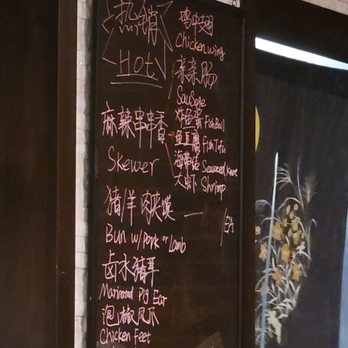 热销
Hot
鸡中翅
Chicken wing
亲亲肠
Sausage
麻辣串串香
Skewer
炸鱼蛋 Fish Ball
鱼豆腐 Fish Tofu
海带结 Seaweed Knot
大虾 Shrimp
猪/洋肉夹馍 — /EA
Bun w/ Pork or Lamb
卤水猪耳
Marinated Pig Ear
泡椒凤爪
Chicken feet